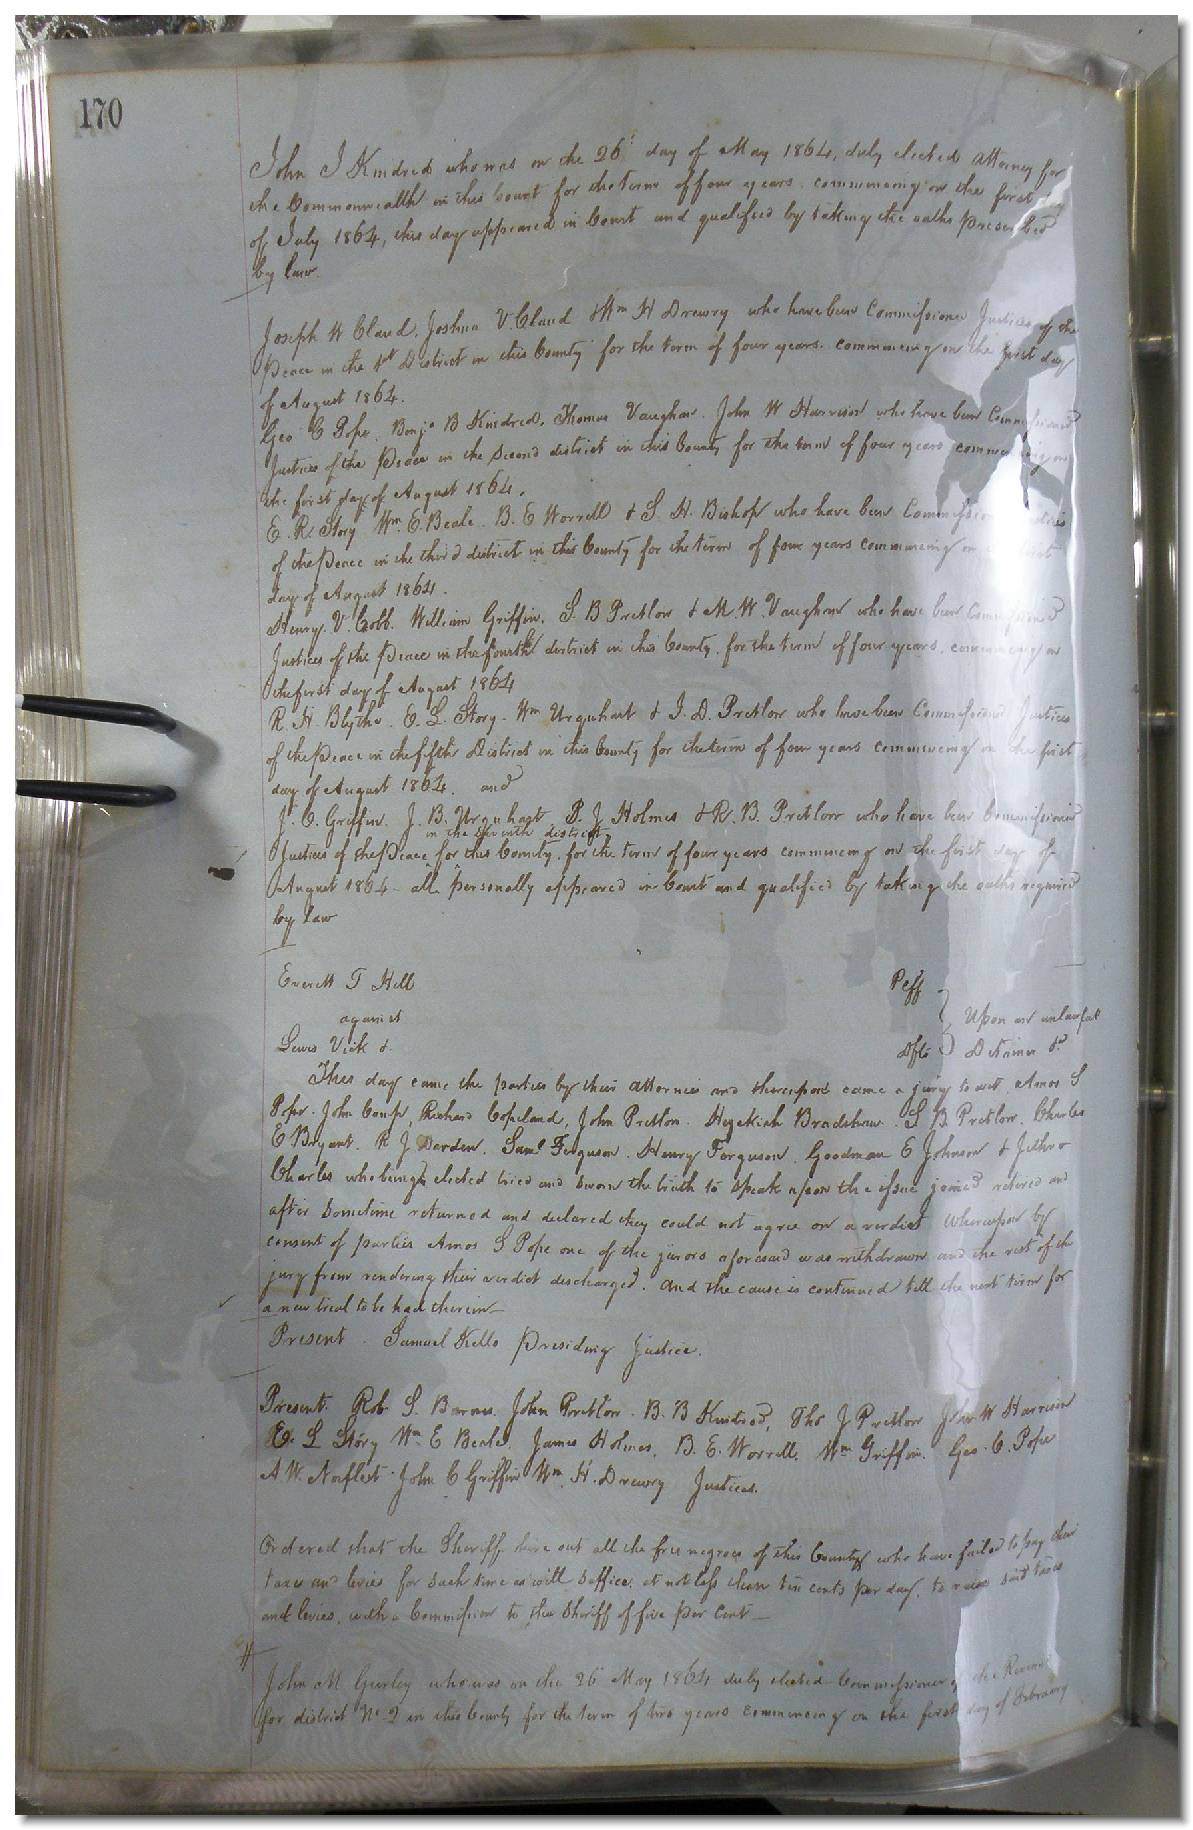 170
John J Kindred who was on the 26 day of May 1864, duly elected attorney for
the Commonwealth in this Court for the term of four years, commencing on the first
of July 1864, this day appeared in Court and qualified by taking the oaths prescribed
by law
Joseph W Claud, Joshua V. Claud & Wm H Drewry who have been Commissioned Justices of the
Peace in the 1st District in this County for the term of four years. commencing on the first day
of August 1864.
Geo C Pope, Benja B Kindred, Thomas Vaughan, John W Harrison who have been Commissioned
Justices of the Peace in the Second district in this County for the term of four years commencing on
the first day of August 1864.
E. R. Story Wm E. Beale. B. E Worrell & S. H. Bishop who have been Commissioned Justices
of the Peace in the third district in this County for the term of four years commencing on the first
day of August 1864.
Henry. V. Cobb. William Griffin, S. B Pretlow & M. W. Vaughan who have been Commissioned
Justices of the Peace in the fourth district in this County. for the term of four years. commencing on
the first day of August 1864
R. H. Blythe. E. L. Story. Wm Urquhart & J. D. Pretlow who have been Commissioned Justices
of the Peace in the fifth District in this County for the term of four years commencing on the first
day of August 1864. and
J. C. Griffin. J. B. Urquhart P. J Holmes & R. B. Pretlow who have been Commissioned
in the seventh district
Justices of the Peace for this County. for the term of four years commencing on the first day of
August 1864 - all personally appeared in Court and qualified by taking the oaths required
by law
Everett T Hill Peff
against Upon an unlawful
Lewis Vick & Dfts Detainer &c
This day came the parties by their attornies and thereupon came a jury to wit, Amos S
Pope. John Camp, Richard Copeland, John Pretlow. Hezekiah Bradshaw. S B Pretlow. Charles
E Bryant. R J Darden. Saml Ferguson. Henry Ferguson. Goodman E Johnson & Jethro
Charles who being elected tried and sworn the truth to speak upon the issue joined retired and
after sometime returned and declared they could not agree on a verdict whereupon by
consent of parties Amos S Pope one of the jurors aforesaid was withdrawn and the rest of the
jury from rendering their verdict discharged. and the cause is continued till the next term for
a new trial to be had therein
Present Samuel Kello Presiding Justice.
Present Rob. S. Barnes. John Pretlow. B. B Kindred, Tho J Pretlow John W Harrison
E. L Story Wm E Beale. James Holmes, B. E. Worrell, Wm Griffin. Geo. C. Pope
A. W. Norfleet John C Griffin Wm H. Drewry Justices.
Ordered that the Sheriff hire out all the free negroes of this County who have failed to pay their
taxes and levies for such time as will suffice, at not less than ten cents per day, to raise said taxes
and levies, with a Commission to the Sheriff of five per Cent
John M Gurley who was on the 26 May 1864 duly elected Commissioner of the Revenue
for district No 2 in this County for the term of two years commencing on the first day of February